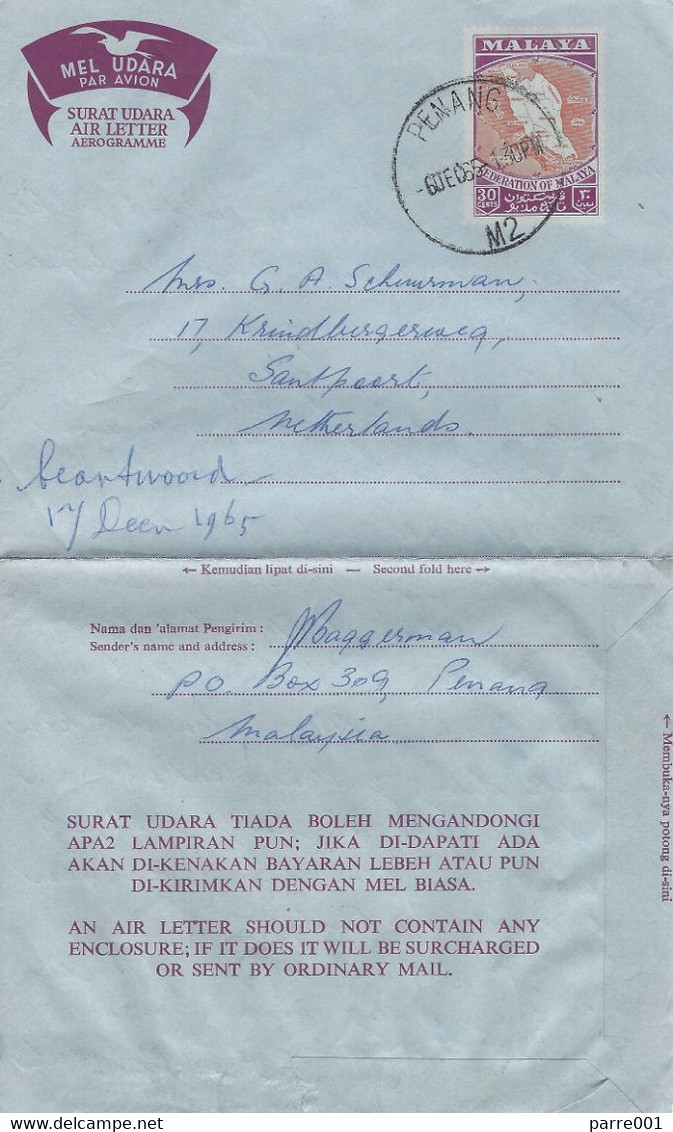 MEL UDARA
PAR AVION
SURAT UDARA
AIR LETTER
AEROGRAMME
MALAYA
FEDERATION OF MALAYA
30
CENTS
PENANG
-6DE065 1.30PM
M2
Mrs. G. A. Schuurman,
17, Krindbergerweg,
Santpoort,
Netherlands.
beantwoord
17 Decen 1965
← Kemudian lipat di-sini — Second fold here →
Nama dan 'alamat Pengirim :
Sender's name and address : Maggerman
PO. Box 309, Penang
Malaysia
← Membuka-nya potong di-sini
SURAT UDARA TIADA BOLEH MENGANDONGI
APA2 LAMPIRAN PUN; JIKA DI-DAPATI ADA
AKAN DI-KENAKAN BAYARAN LEBEH ATAU PUN
DI-KIRIMKAN DENGAN MEL BIASA.
AN AIR LETTER SHOULD NOT CONTAIN ANY
ENCLOSURE; IF IT DOES IT WILL BE SURCHARGED
OR SENT BY ORDINARY MAIL.
parre001